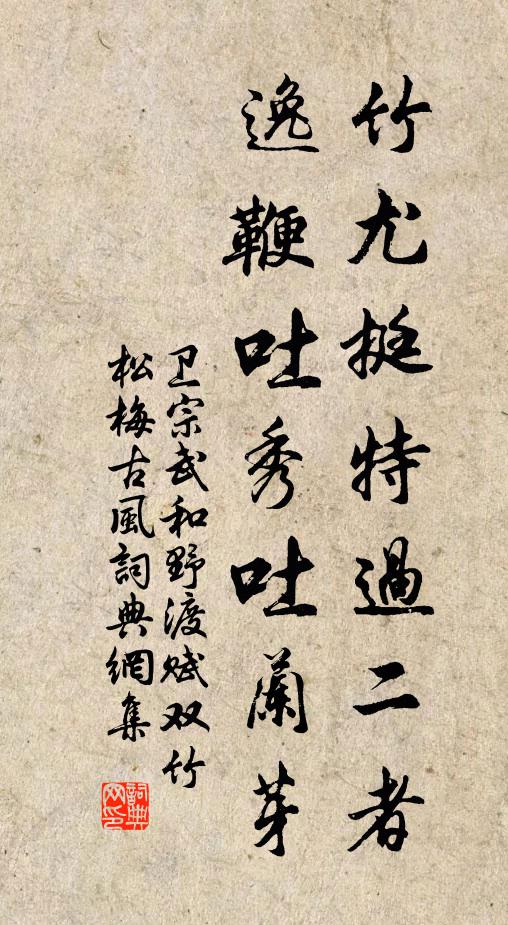 竹尤挺特過二者
逸鞭吐秀吐蘭芽
卫宗武和野渡赋双竹
松梅古風詞典網集
詞典网印